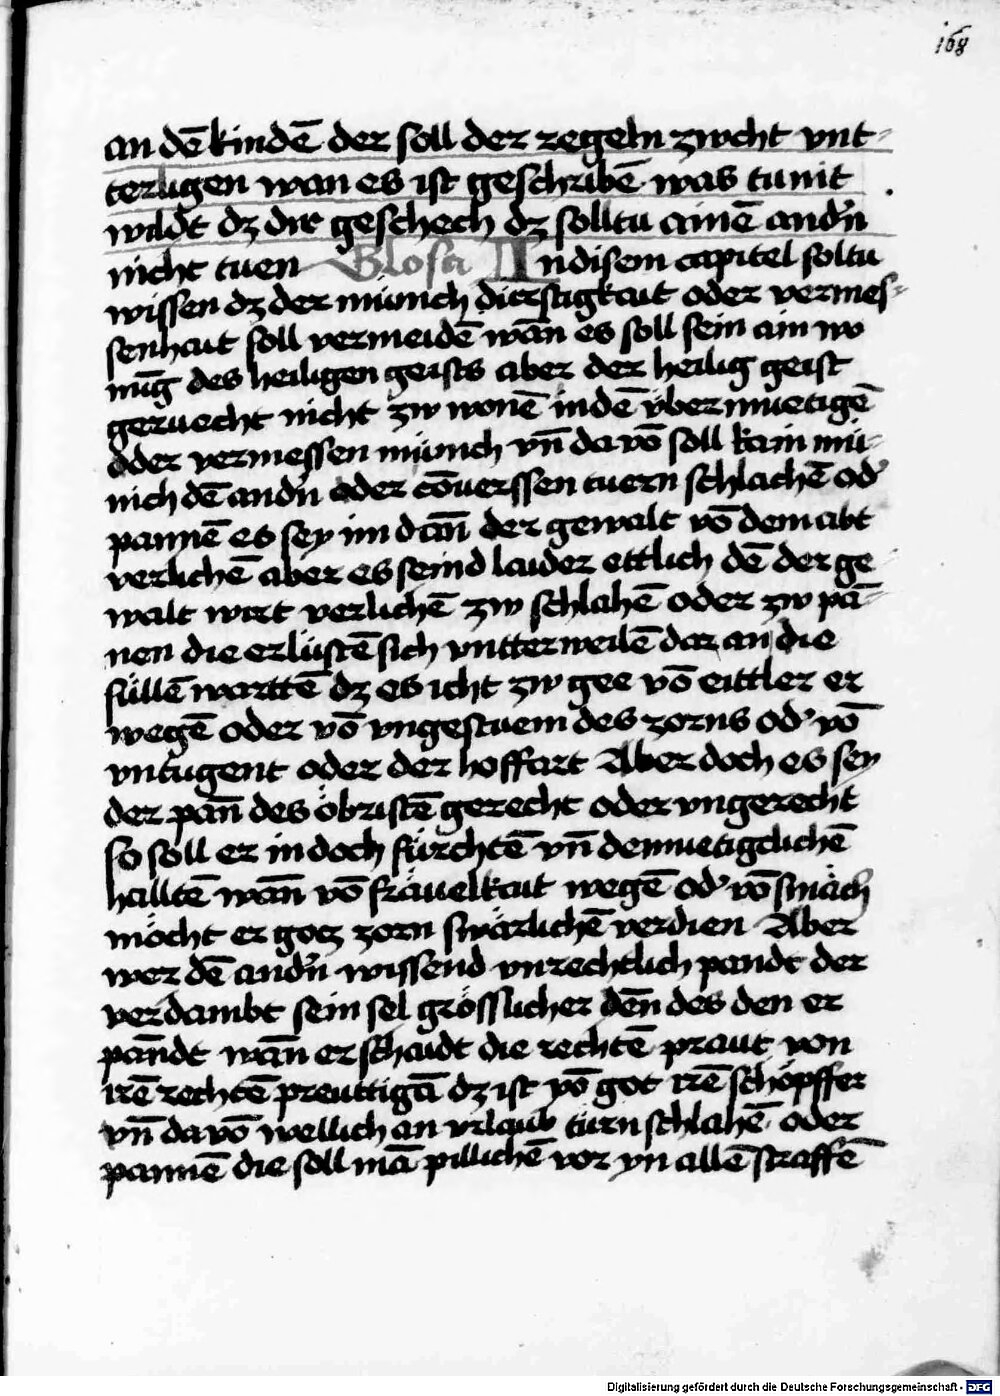 168
an dē kindē der soll der regeln zwcht vnt-
terligen wan es ist geschribē was tu nit
wildt dz dir geschech dz solltu ainē andn̄
nicht tuen Glosa In disem capitel soltu
wissen dz der münich dierstigkait oder vermes-
senhait soll vermeidē wan̄ es soll sein ain wo
nūg des heiligen geists aber der heilig geist
geruecht nicht zw wonē in dē v̈bermuetigē
oder vermessen münich vn̄ da vō soll kain mü-
nich dē andn̄ oder cōuerssen tuern schlachē od'
pannē es sey im dan̄ der gewalt vō dem abt
verlichē aber es seind laider ettlich dē der ge-
walt wirt verlichē zw schlahē oder zw pā-
nen die erlüstē sich vntterweilē dar an die
füllē warttē dz es icht zw gee vō eittler er
wegē oder vō vngestuem des zorns od' vō
vntugent oder der hoffart Aber doch es sey
der pan̄ des öbristē gerecht oder vngerecht
so soll er in doch fürchtē vn̄ demuetigclichē
halltē wan̄ vō fräuelkait wegē od' vō smäch
möcht er gotz zorn swärlichē verdien Aber
wer dē andn̄ wissend vnrechtlich pandt der
verdambt sein sel grösslicher den̄ des den er
pan̄dt wan̄ er schaidt die rechtē praut von
irē rechtē preuttigā dz ist vō got irē schöpffer
vn̄ da vō wellich an vrlaub türn schlahē oder
pannē die soll mā pillichē vor yn allē straffē
Digitalisierung gefördert durch die Deutsche Forschungsgemeinschaft - DFG